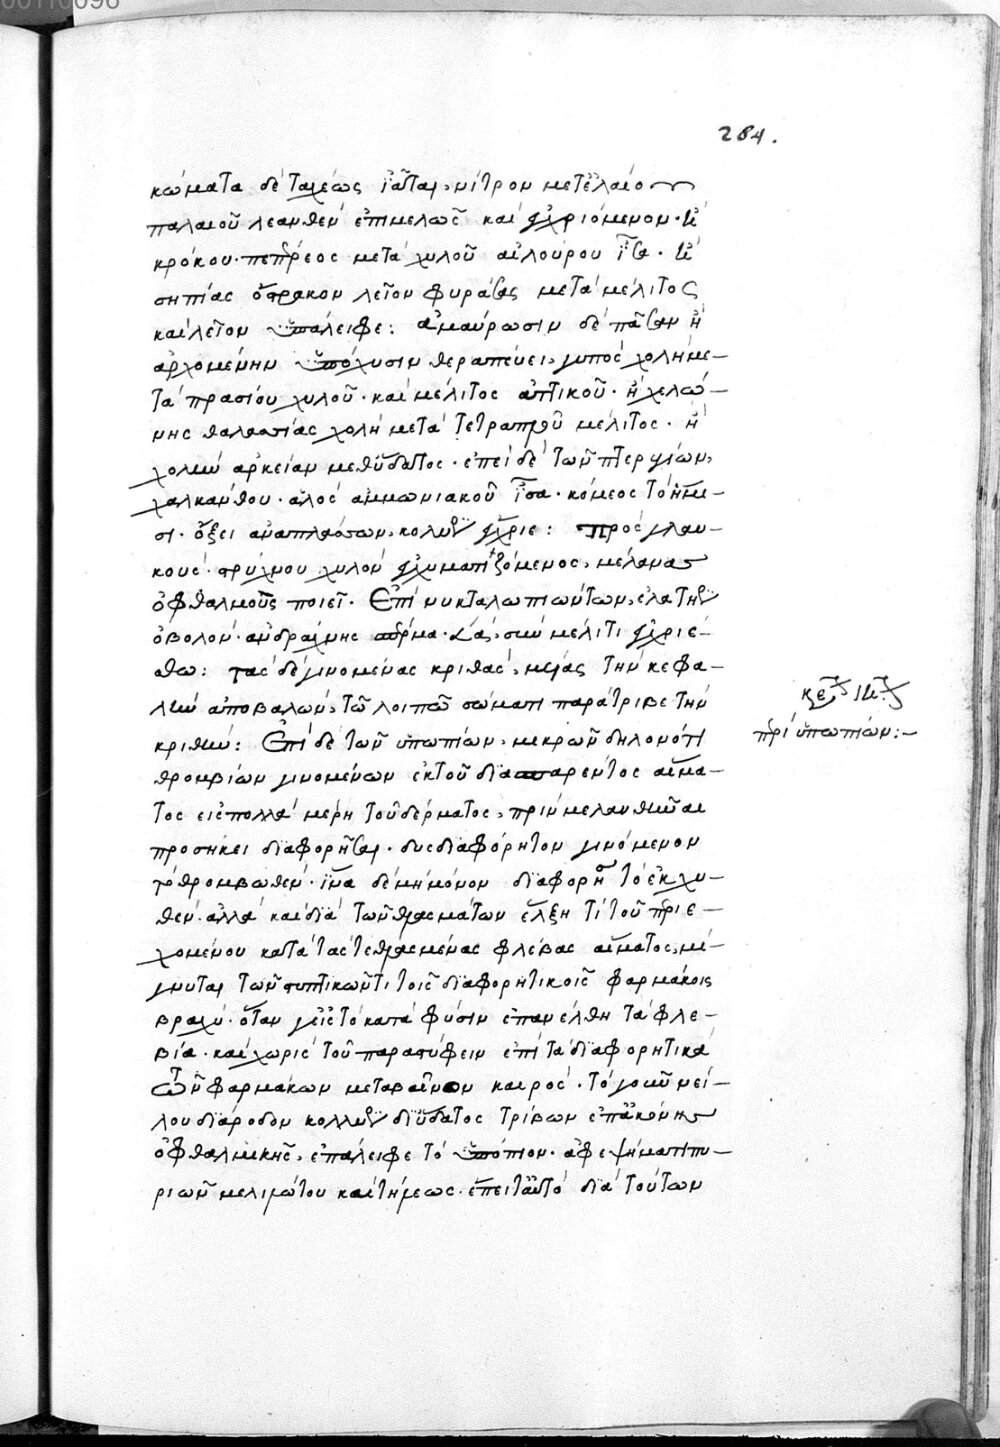 284.
κώματα δὲ ταχέως ἰᾶται, νίτρον μετ' ἐλαίου
παλαιοῦ λεανθὲν ἐπιμελῶς καὶ ἐγχριόμενον. ἢ
κρόκου. πεπέρεος μετὰ χυλοῦ αἰλούρου ἴσα. ἢ
σηπίας ὄστρακον λεῖον φυράσας μετὰ μέλιτος
καὶ λεῖον ὑπάλειφε: ἀμαύρωσιν δὲ πᾶσαν ἢ
ἀρχομένην ὑπόχυσιν θεραπεύει, γυπὸς χολὴ με-
τὰ πρασίου χυλοῦ. καὶ μέλιτος ἀττικοῦ. ἢ χελώ-
νης θαλασσίας χολὴ μετὰ τετραπλοῦ μέλιτος. ἢ
χολὴν ἀρκείαν μεθ' ὕδατος. ἐπεὶ δὲ τῶν πτερυγίων,
χαλκάνθου. ἁλὸς ἀμμωνιακοῦ ἴσα. κόμεος τὸ ἥμι-
συ. ὄξει ἀναπλάσσων, κολλύρια ἔγχριε: πρὸς γλαυ-
κούς. στρύχνου χυλὸν ἐγχυματιζόμενος, μέλανας
ὀφθαλμοὺς ποιεῖ. Ἐπὶ νυκταλωπιώντων, ἐλατηρίου
ὀβολόν. ἀνδράχνης σπέρμα. σὺν μέλιτι ἐγχριέ-
σθω: τὰς δὲ γινομένας κριθάς, μυίας τὴν κεφα-
λὴν ἀποβαλών, τῷ λοιπῷ σώματι παράτριβε τὴν
κριθήν: Ἐπὶ δὲ τῶν ὑπωπίων, μικρῶν δηλονότι
θρομβίων γινομένων ἐκ τοῦ διασπαρέντος αἵμα-
τος εἰς πολλὰ μέρη τοῦ δέρματος, πρὶν μελανθῆναι
προσήκει διαφορῆσαι. δυσδιαφόρητον γινόμενον
τὸ θρομβωθέν. ἵνα δὲ μὴ μόνον διαφορῇ τὸ ἐκχυ-
θέν. ἀλλὰ καὶ διὰ τῶν θλασμάτων ἕλξῃ τὶ τοῦ περιε-
χομένου κατὰ τὰς τεθλασμένας φλέβας αἵματος, μί-
γνυται τῶν στυπτικῶν τι τοῖς διαφορητικοῖς φαρμάκοις
βραχύ. ὅταν γε εἰς τὸ κατὰ φύσιν ἐπανέλθῃ τὰ φλε-
βία. καὶ χωρὶς τοῦ παραστύφειν ἐπὶ τὰ διαφορητικὰ
τῶν φαρμάκων μεταβαίνειν καιρός. τὸ γοῦν νεί-
λου διάροδον κολλύριον δι' ὕδατος τρίβων ἐπ' ἀκόνης
ὀφθαλμικῆς, ἐπάλειφε τὸ ὑπόπιον. ἀφεψήματι πυ-
ριῶν μελιλώτου καὶ τήλεως. ἔπειτ' αὐτὸ διὰ τούτων
περὶ ὑπωπίων:-